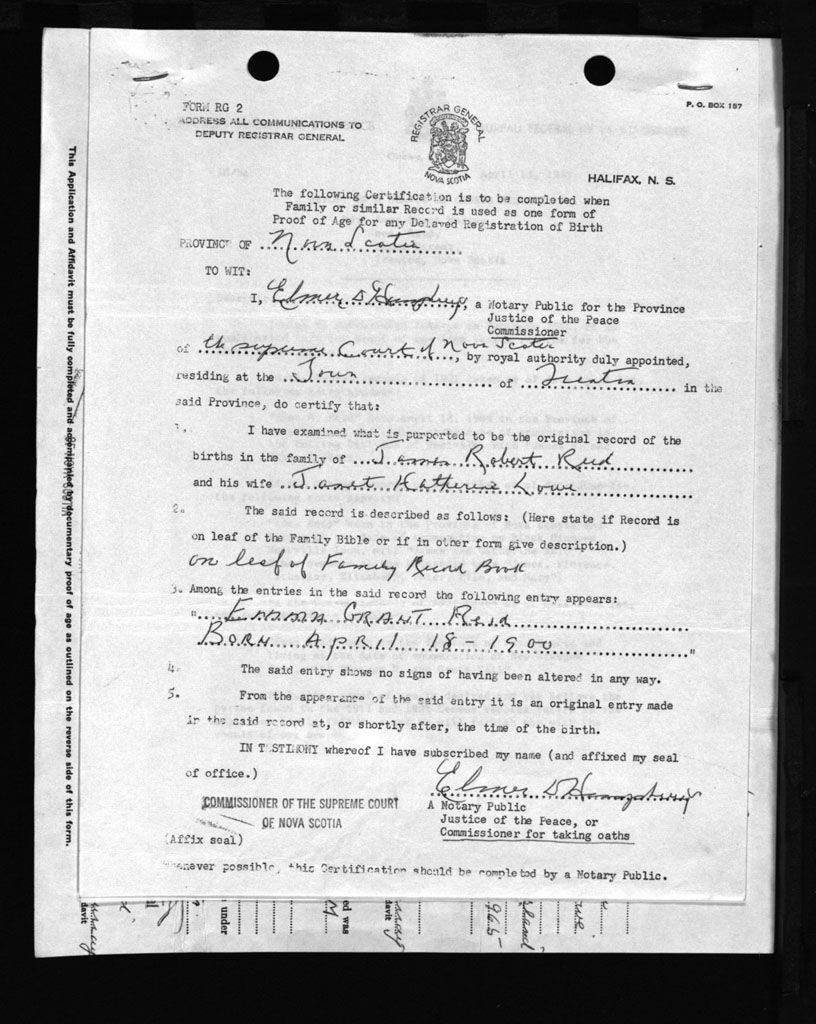 FORM RG 2
ADDRESS ALL COMMUNICATIONS TO
DEPUTY REGISTRAR GENERAL
REGISTRAR GENERAL
NOVA SCOTIA
P. O. BOX 157
HALIFAX, N. S.
The following Certification is to be completed when
Family or similar Record is used as one form of
Proof of Age for any Delayed Registration of Birth
PROVINCE OF Nova Scotia
TO WIT:
I, Elmer D Humphrey, a Notary Public for the Province
Justice of the Peace
Commissioner
of the supreme Court of Nova Scotia, by royal authority duly appointed,
residing at the Town of in the
said Province, do certify that:
1. I have examined what is purported to be the original record of the
births in the family of James Robert Reid
and his wife Janet Katherine Lowe
2. The said record is described as follows: (Here state if Record is
on leaf of the Family Bible or if in other form give description.)
on leaf of Family Record Book
3. Among the entries in the said record the following entry appears:
" Emma GRANT Reid
BORN APRIl 18-1900 "
4. The said entry shows no signs of having been altered in any way.
5. From the appearance of the said entry it is an original entry made
in the said record at, or shortly after, the time of the birth.
IN TESTIMONY whereof I have subscribed my name (and affixed my seal
of office.)
Elmer D Humphrey
COMMISSIONER OF THE SUPREME COURT
OF NOVA SCOTIA
A Notary Public
Justice of the Peace, or
Commissioner for taking oaths
(Affix seal)
Whenever possible, this Certification should be completed by a Notary Public.
This Application and Affidavit must be fully completed and accompanied by documentary proof of age as outlined on the reverse side of this form.
davit
under
ed was
davit